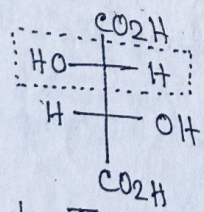 CO2H
HO H
H OH
CO2H